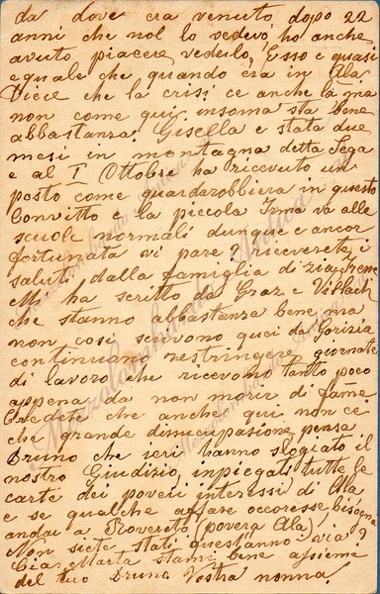 da dove era venuto dopo 22
anni che nol lo vedevo ho anche
avuto piacere vederlo, Esso e quasi
equale che quando era in Ala
Dice che la crisi ce anche là ma
non come qui insoma sta bene
abbastanza. Gisella e stata due
mesi in montagna detta Sega
e al I Ottobre ha ricevuto un
posto come guardarobbiera in questo
Convitto e la piccola Irma va alle
scuole normali dunque e ancor
fortunata vi pare? riceverete i
saluti dalla famiglia di zia Irene
Mi ha scritto da Graz e Villach
che stanno abbastanza bene, ma
non cosi scrivono quei da Gorizia
continuano restringere, giornate
di lavoro che ricevono tanto poco
appena da non morir di fame
Credete che anche qui non ce
che grande disocupasione pensa
Bruno che ieri hanno slogiato il
nostro Giudizio, inpiegati tutte le
carte dei poveri interessi di Ala
e se qualche affare occoresse bisogna
andar a Rovereto (povera Ala)
Non siete stati quest'anno in via?
Ciao Marta stami bene assieme
del tuo Bruno Vostra nonna.